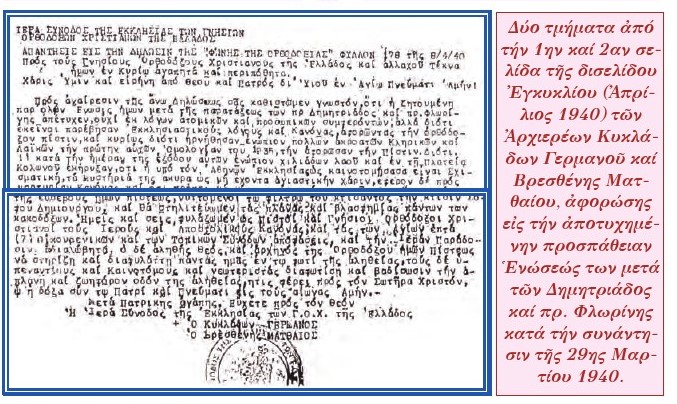 ΙΕΡΑ ΣΥΝΟΔΟΣ ΤΗΣ ΕΚΚΛΗΣΙΑΣ ΤΩΝ ΓΝΗΣΙΩΝ
ΟΡΘΟΔΟΞΩΝ ΧΡΙΣΤΙΑΝΩΝ ΤΗΣ ΕΛΛΑΔΟΣ
ΑΠΑΝΤΗΣΙΣ ΕΙΣ ΤΗΝ ΔΗΛΩΣΙΝ ΤΗΣ "ΦΩΝΗΣ ΤΗΣ ΟΡΘΟΔΟΞΙΑΣ" ΦΥΛΛΟΝ 178 της 8/4/40
Πρός τούς Γνησίους Ὀρθοδόξους Χριστιανούς τῆς Ἑλλάδος καί ἀλλαχοῦ τέκνα
ἡμῶν ἐν Κυρίῳ ἀγαπητά καί περιπόθητα.
Χάρις Ὑμῖν καί εἰρήνη ἀπό Θεοῦ καί Πατρός δι' Υἱοῦ ἐν Ἁγίῳ Πνεύματι Ἀμήν!
Πρός ἀναίρεσιν τῆς ἄνω Δηλώσεως σᾶς καθιστῶμεν γνωστόν, ὅτι ἡ ζητουμένη
παρ' ὅλων Ἕνωσις ἡμῶν μετά τῆς παρατάξεως τῶν πρ Δημητριάδος καί πρ. Φλωρίνης
ἀπέτυχεν, οὐχί ἐκ λόγων ἀτομικῶν καί προσωπικῶν συμφερόντων, ἀλλά διότι
ἐκεῖνοι παρέβησαν Ἐκκλησιαστικούς λόγους καί Κανόνας, ἀφορῶντας τήν ὀρθόδο-
ξον πίστιν, καί κυρίως διότι ἠρνήθησαν ἐνώπιον πολλῶν ἀκροατῶν Κληρικῶν καί
Λαϊκῶν τήν πρώτην αὐτῶν Ὁμολογίαν τοῦ 1935, τήν ἀφορῶσαν τήν πίστιν. Διότι,
κατά τήν ἡμέραν τῆς ἐξόδου αὐτῶν ἐνώπιον χιλιάδων λαοῦ καί ἐν τῇ πλατείᾳ
Κολωνοῦ ἐκήρυξαν, ὅτι ἡ ὑπό τόν Ἀθηνῶν Ἐκκλησία ὡς καινοτομήσασα εἶναι Σχι-
σματική, τά μυστήριά της ἄκυρα ὡς μή ἔχοντα ἁγιαστικήν χάριν, ἐφ' ὅσον δέ πρός
του Δημιουργοῦ, καί θά στηλιτεύωμεν τάς πλάνας καί βλασφημίας πάντων τῶν
κακοδόξων. Ἡμεῖς καί σεῖς, φυλάξωμεν ὡς πιστοί καί Γνήσιοι Ὀρθόδοξοι Χρι-
στιανοί τούς Ἱερούς καί Ἀποστολικούς Κανόνας, καί τάς τῶν ἁγίων ἑπτά
(7) Οἰκουμενικῶν καί τῶν Τοπικῶν Συνόδων ἀποφάσεις, καί τήν Ἱεράν Παράδο-
σιν ἀπαράβατα, ὁ δέ ἀληθής Θεός καί ἀρχηγός τῆς Ὀρθοδόξου ἡμῶν Πίστεως
νά στηρίξῃ καί διαφυλάττῃ πάντας ἡμᾶς ἐν τῷ φωτί τῆς ἀληθείας, τούς δέ ὑ-
πεναντίους καί Καινοτόμους καί νεωτεριστάς διαφωτίσῃ καί βαδίσωσιν τήν ἁ-
πλανῆ καί ζωηφόρον ὁδόν τῆς ἀληθείας, ἥτις φέρει πρός τόν Σωτῆρα Χριστόν,
ᾧ ἡ δόξα σύν τῷ Πατρί καί Πνεύματι εἰς τούς αἰῶνας Ἀμήν.-
Μετά Πατρικῆς ἀγάπης, Εὐχέτες πρός τόν Θεόν
Ἡ Ἱερά Σύνοδος τῆς Ἐκκλησίας τῶν Γ.Ο.Χ. τῆς Ἑλλάδος
+ Ὁ Κυκλάδων ΓΕΡΜΑΝΟΣ
Ὁ Βρεσθένης ΜΑΤΘΑΙΟΣ
Δύο τμήματα ἀπό
τήν 1ην καί 2αν σε-
λίδα τῆς δισελίδου
Ἐγκυκλίου (Ἀπρί-
λιος 1940) τῶν
Ἀρχιερέων Κυκλά-
δων Γερμανοῦ καί
Βρεσθένης Ματ-
θαίου, ἀφορώσης
εἰς τήν ἀποτυχημέ-
νην προσπάθειαν
Ἑνώσεώς των μετά
τῶν Δημητριάδος
καί πρ. Φλωρίνης
κατά τήν συνάντη-
σιν τῆς 29ης Μαρ-
τίου 1940.